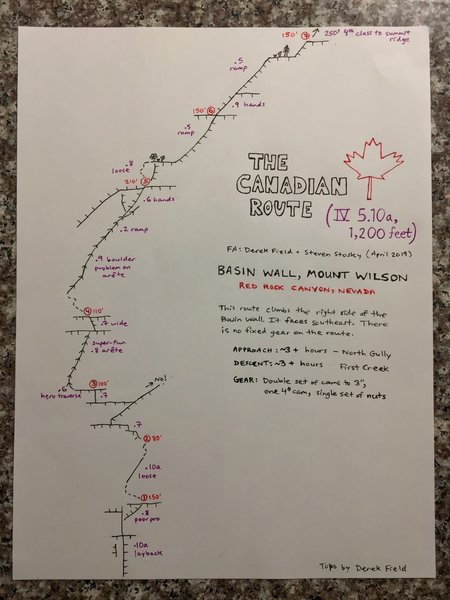 150' 7
250' 4th class to summit
ridge
.5
ramp
.9 hands
150' 6
.5
ramp
.8
loose
210' 5
.6 hands
.2 ramp
.9 boulder
problem on
arête
4 110'
.7 wide
super-fun
.8 arête
3 100'
NO!
.6
hero traverse
.7
.7
2 80'
.10a
loose
1 150'
.8
poor pro
.10a
layback
THE
CANADIAN
ROUTE
(IV 5.10a,
1,200 feet)
FA: Derek Field + Steven Stosky (April 2019)
BASIN WALL, MOUNT WILSON
RED ROCK CANYON, NEVADA
This route climbs the right side of the
Basin Wall. It faces southeast. There
is no fixed gear on the route.
APPROACH: ~3+ hours - North Gully
DESCENT: ~3+ hours First Creek
GEAR: Double set of cams to 3",
one 4" cam, single set of nuts
Topo by Derek Field